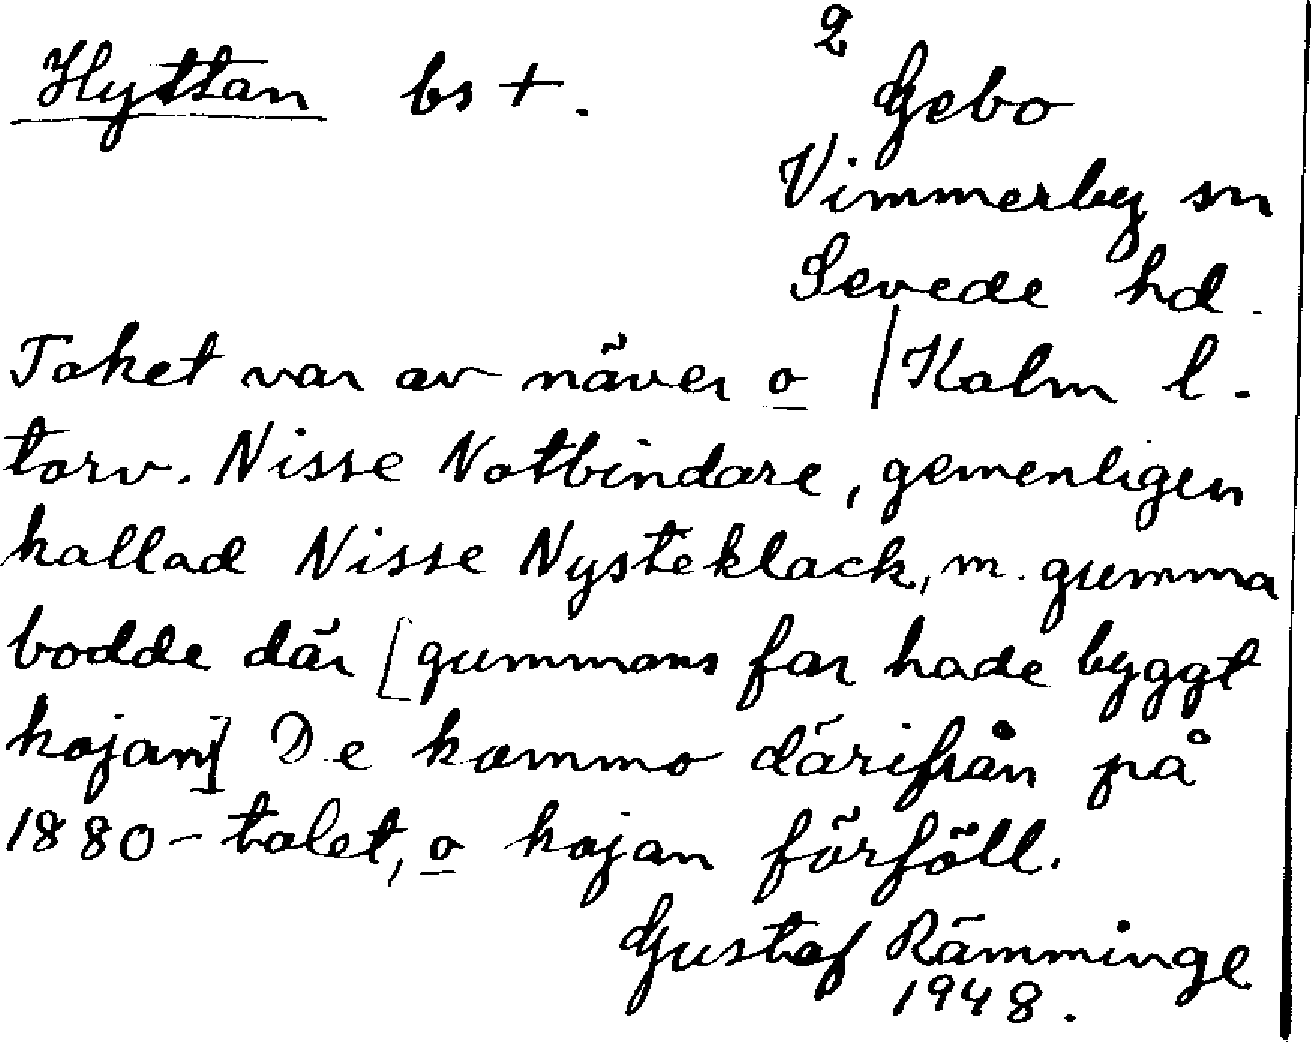 2
Hyttan bs +. Gebo
Vimmerby sn
Sevede hd.
Taket var av näver o / Kalm l.
torv. Nisse Notbindare, gemenligen
kallad Nisse Nysteklack, m. gumma
bodde där [gummans far hade byggt
kojan] De kommo därifrån på
1880-talet, o kojan förföll.
Gustaf Rämminge
1948.